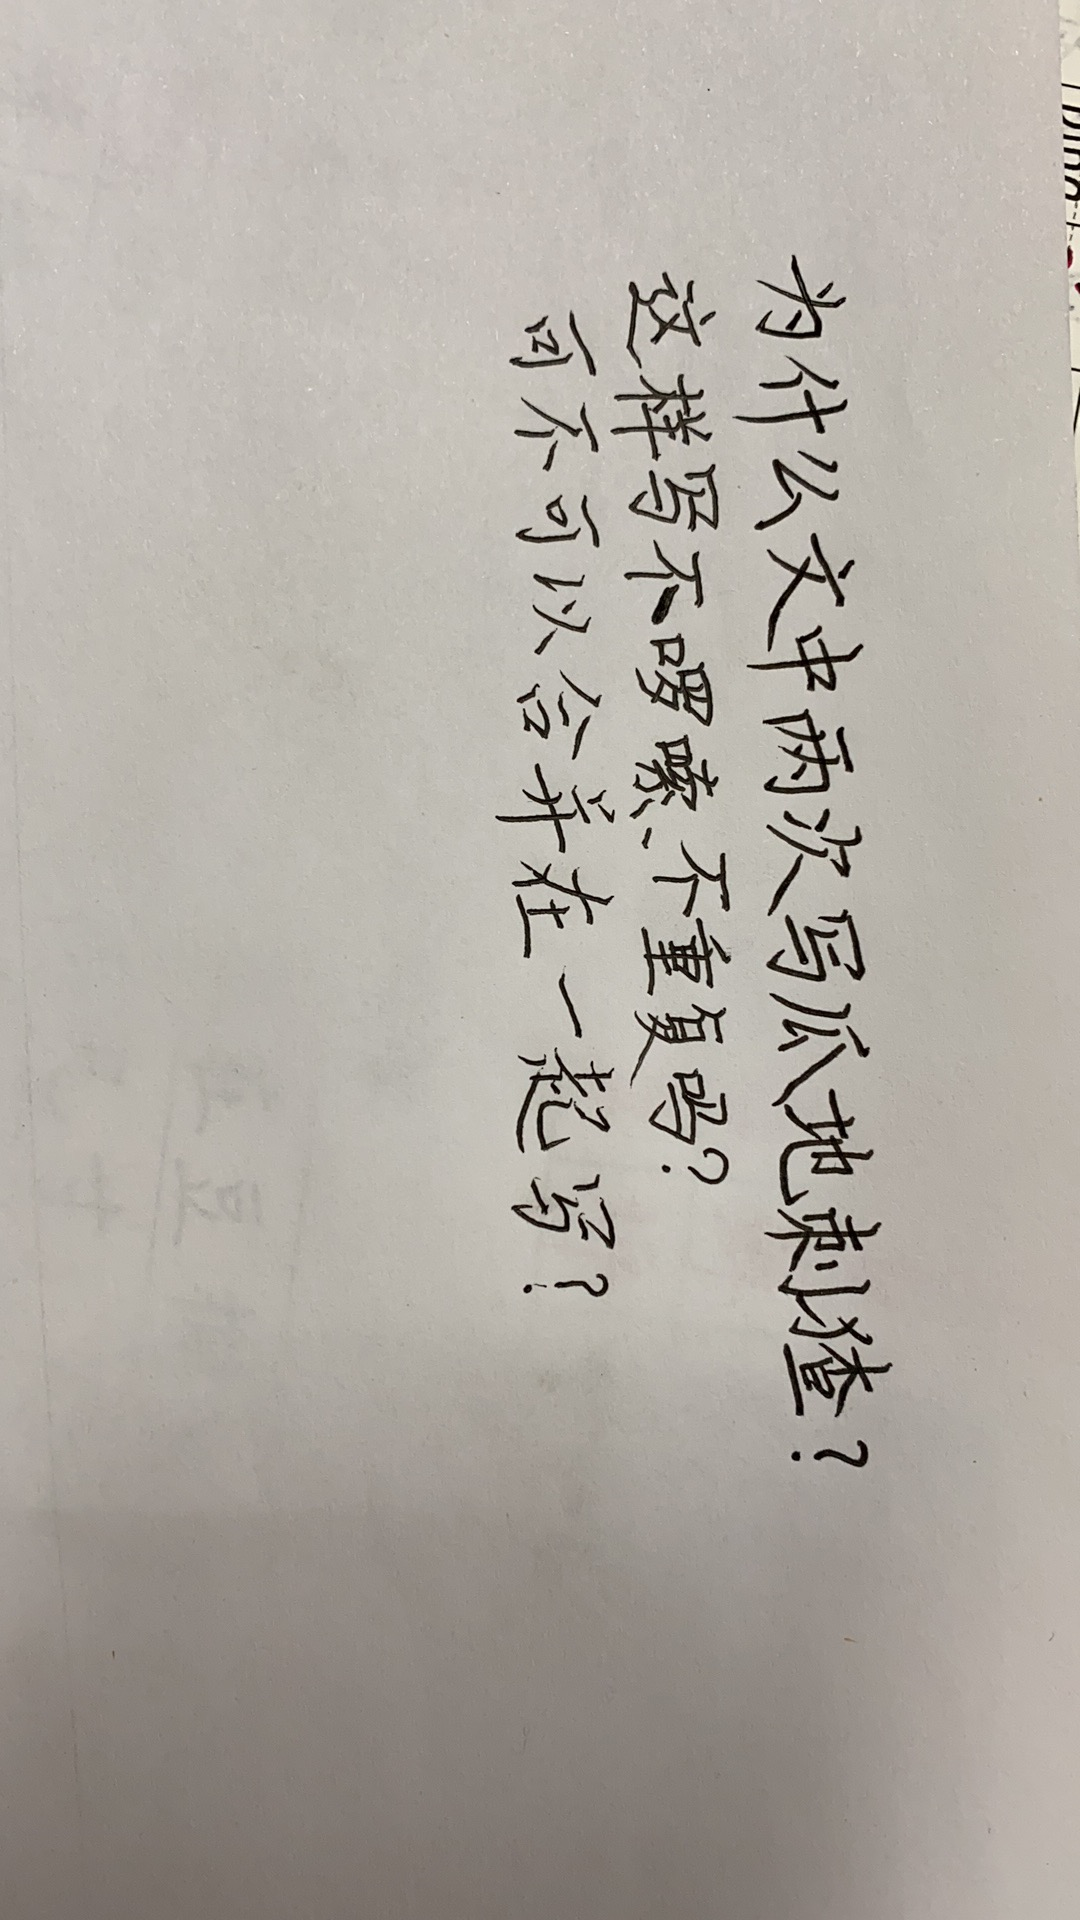 为什么文中两次写瓜地刺猹?
这样写不啰嗦、不重复吗?
可不可以合并在一起写?